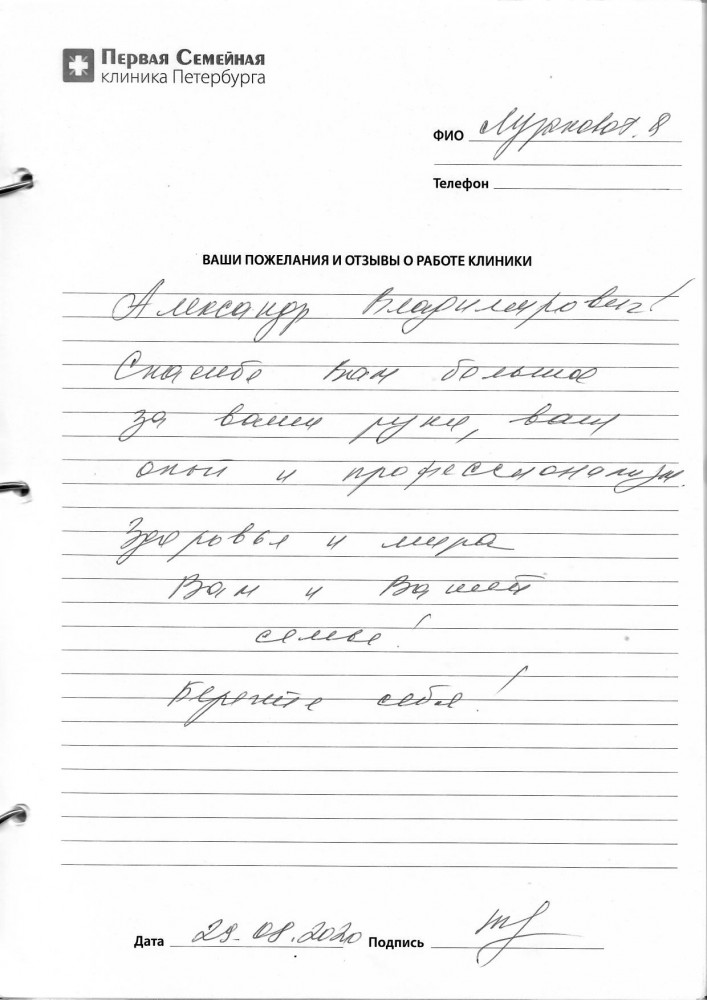 Первая Семейная
клиника Петербурга
ФИО
Телефон
ВАШИ ПОЖЕЛАНИЯ И ОТЗЫВЫ О РАБОТЕ КЛИНИКИ
Александр Владимирович!
Спасибо Вам большое
за ваши руки, ваш
опыт и профессионализм.
Здоровья и мира
Вам и Вашей
семье!
Берегите себя!
Дата 29.08.2020 Подпись